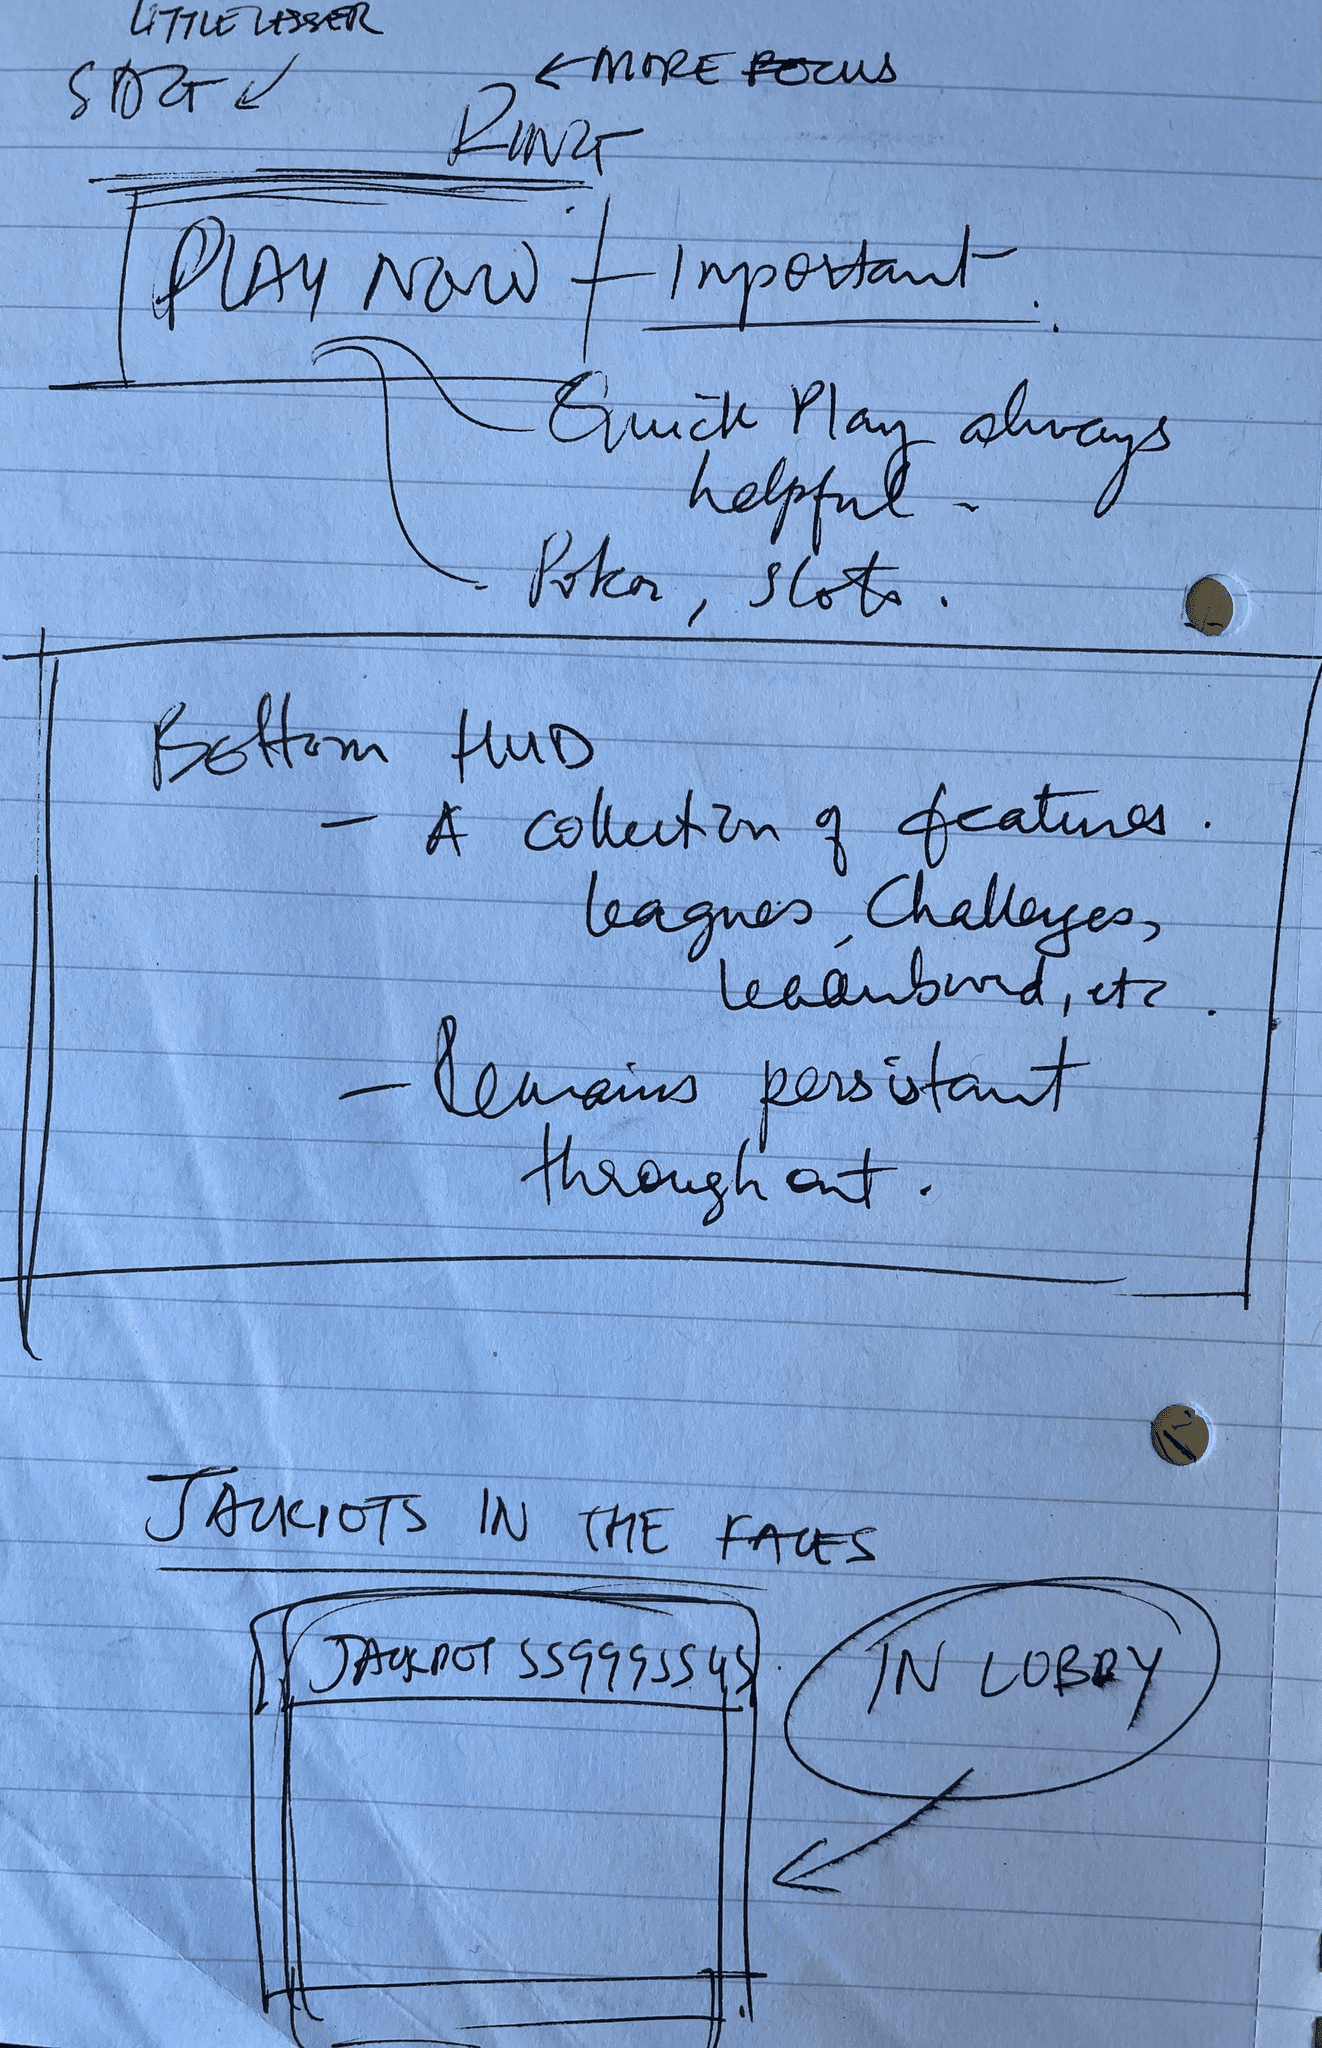 LITTLE LESSER
← MORE FOCUS
PLAY NOW
Important.
Quick Play always
helpful -
- Poker, slots.
Bottom HUD
- A collection of features.
leagues, Challenges,
leaderboard, etc.
- Remains persistant
throughout.
JACKPOTS IN THE FACES
JACKPOT
IN LOBBY